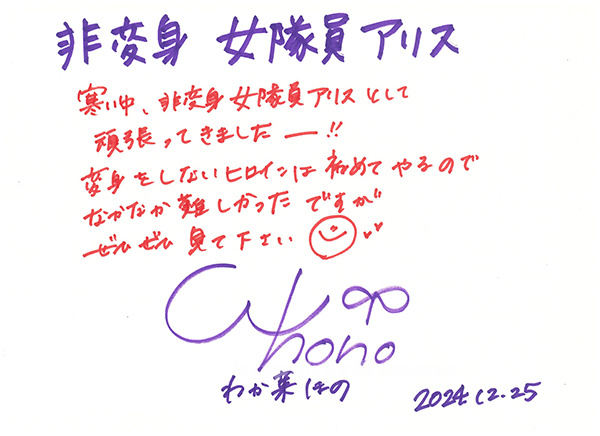 非変身 女隊員アリス
寒い中、非変身女隊員アリスとして
頑張ってきましたー!!
変身をしないヒロインは初めてやるので
なかなか難しかったですが
ぜひぜひ見て下さい
hono
わか菜ほの 2024.12.25